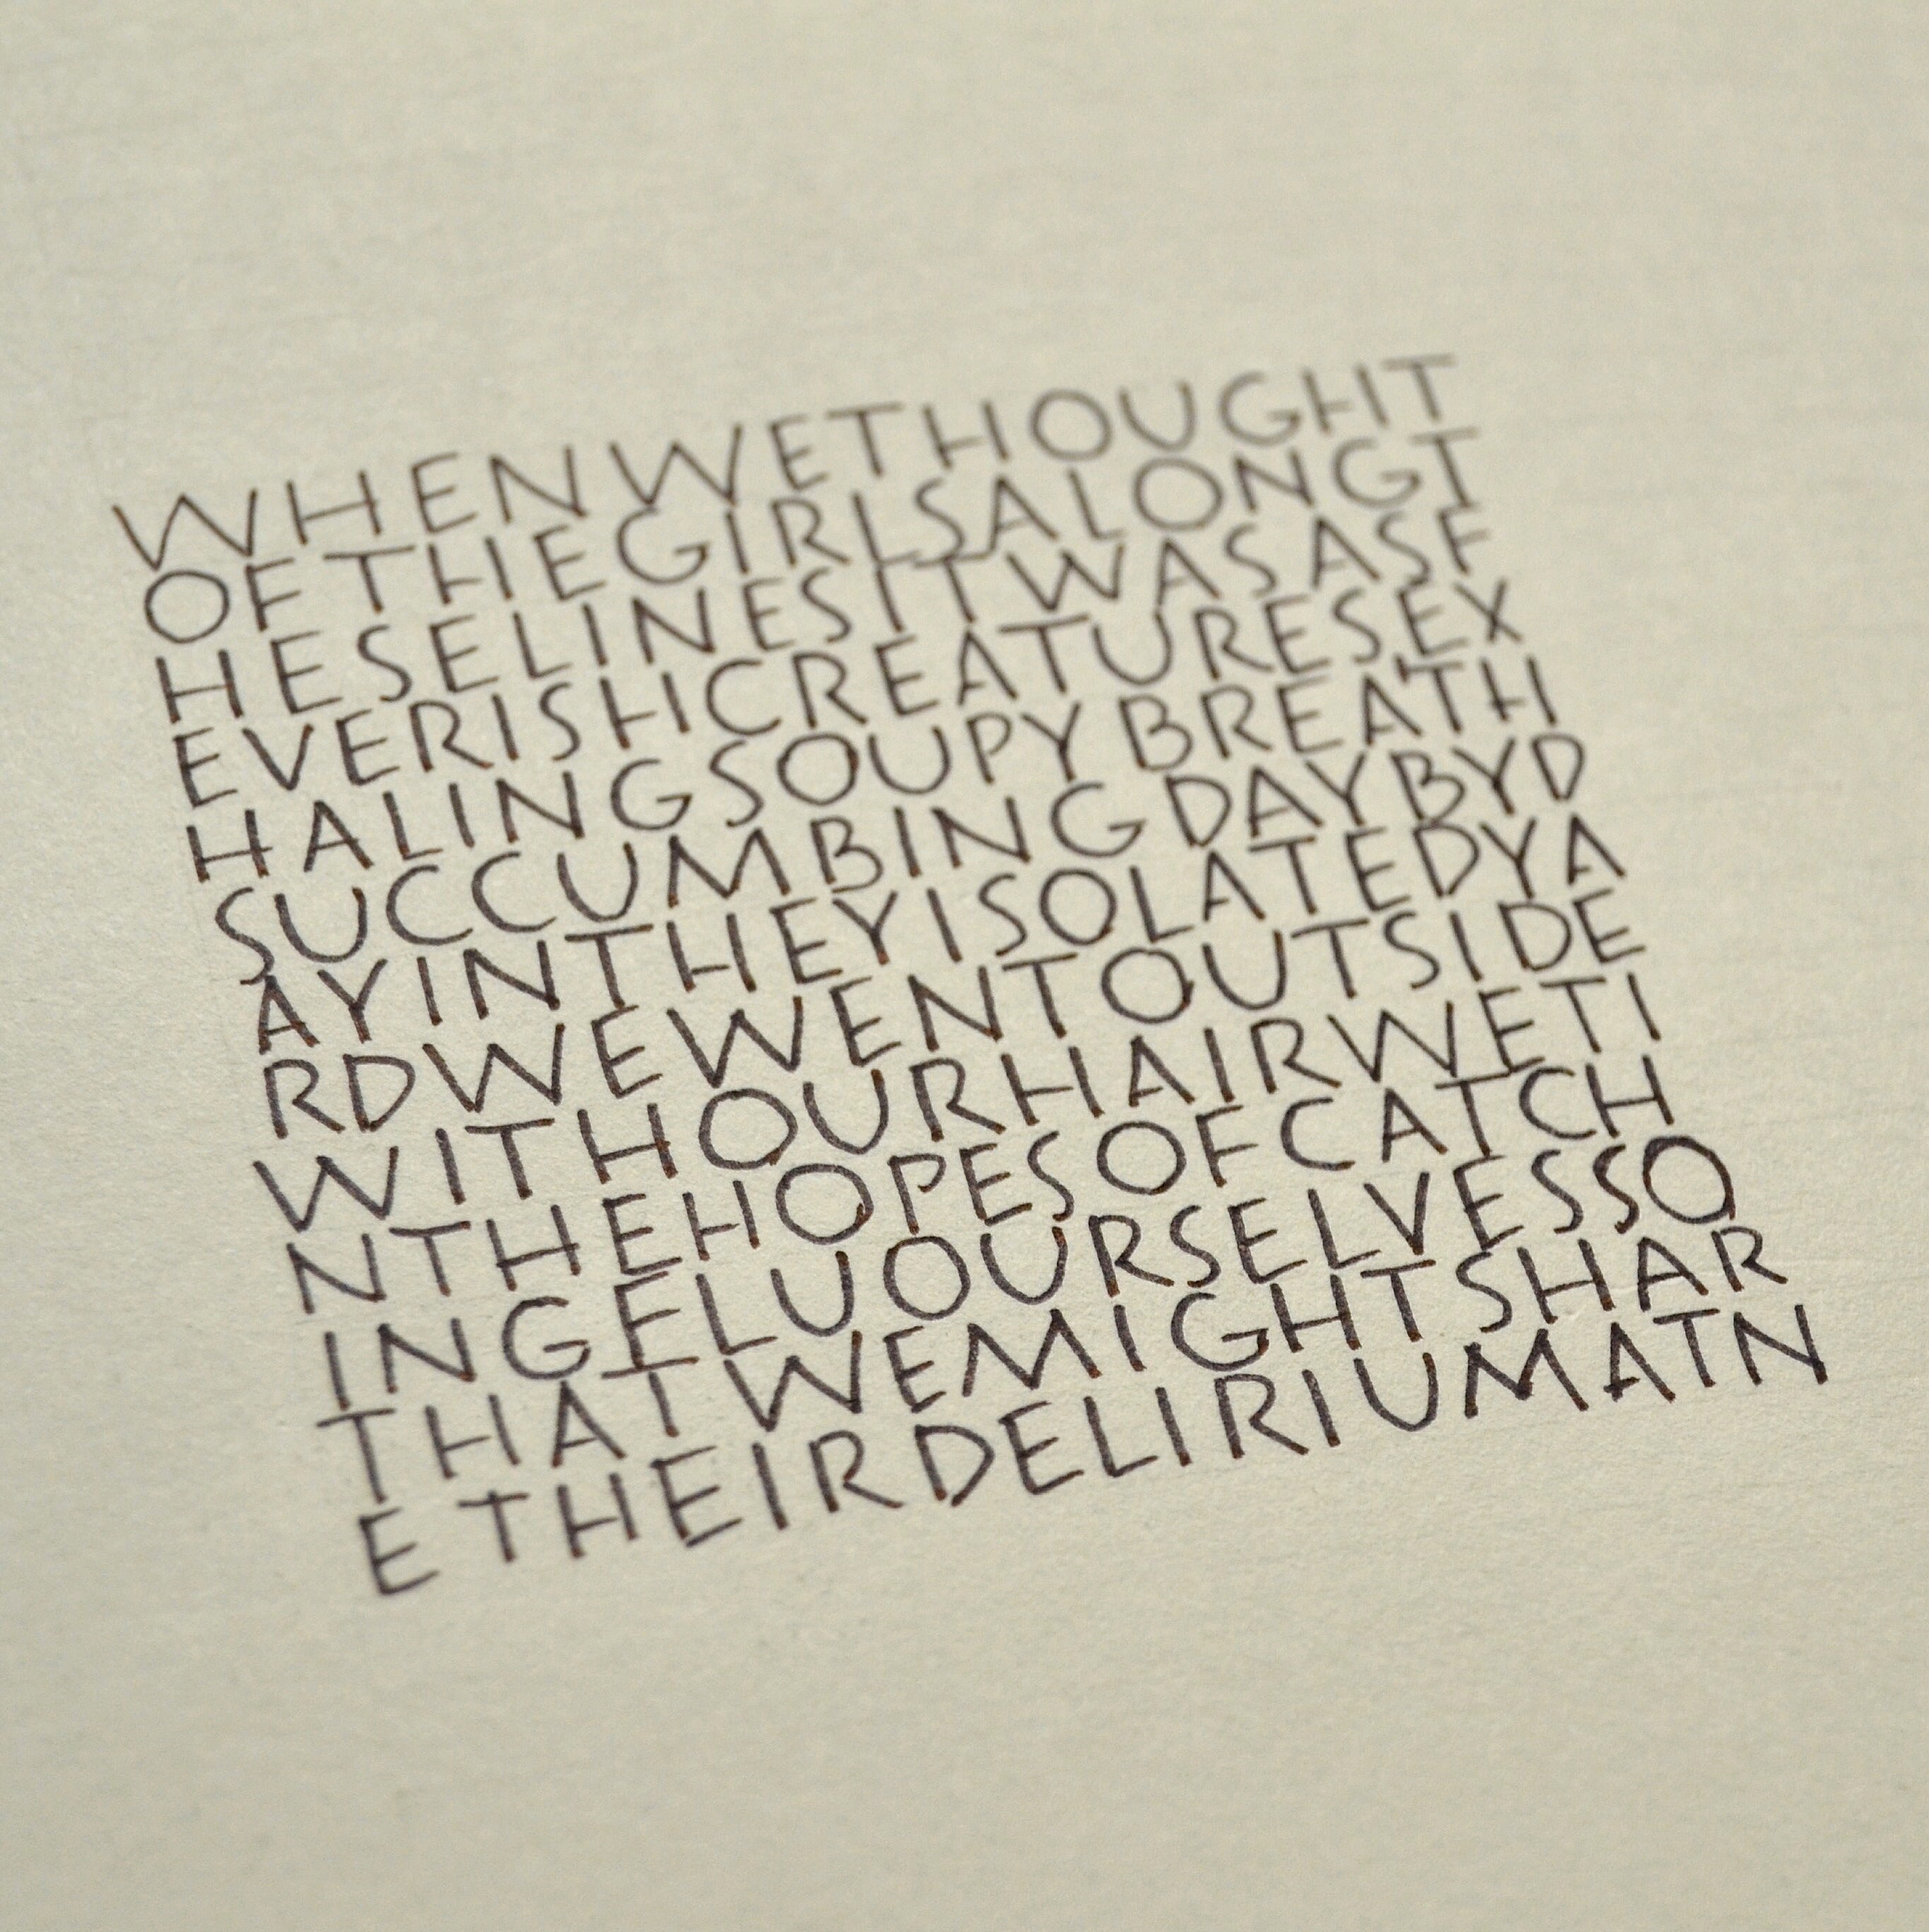 WHENWETHOUGHT
OFTHEGIRLSALONGT
HESELINESITWASASF
EVERISHCREATURESEX
HALINGSOUPYBREATH
SUCCUMBINGDAYBYD
AYINTHEYISOLATEDYA
RDWEWENTOUTSIDE
WITHOURHAIRWETI
NTHEHOPESOFCATCH
INGFLUOURSELVESSO
THATWEMIGHTSHAR
ETHEIRDELIRIUMATN